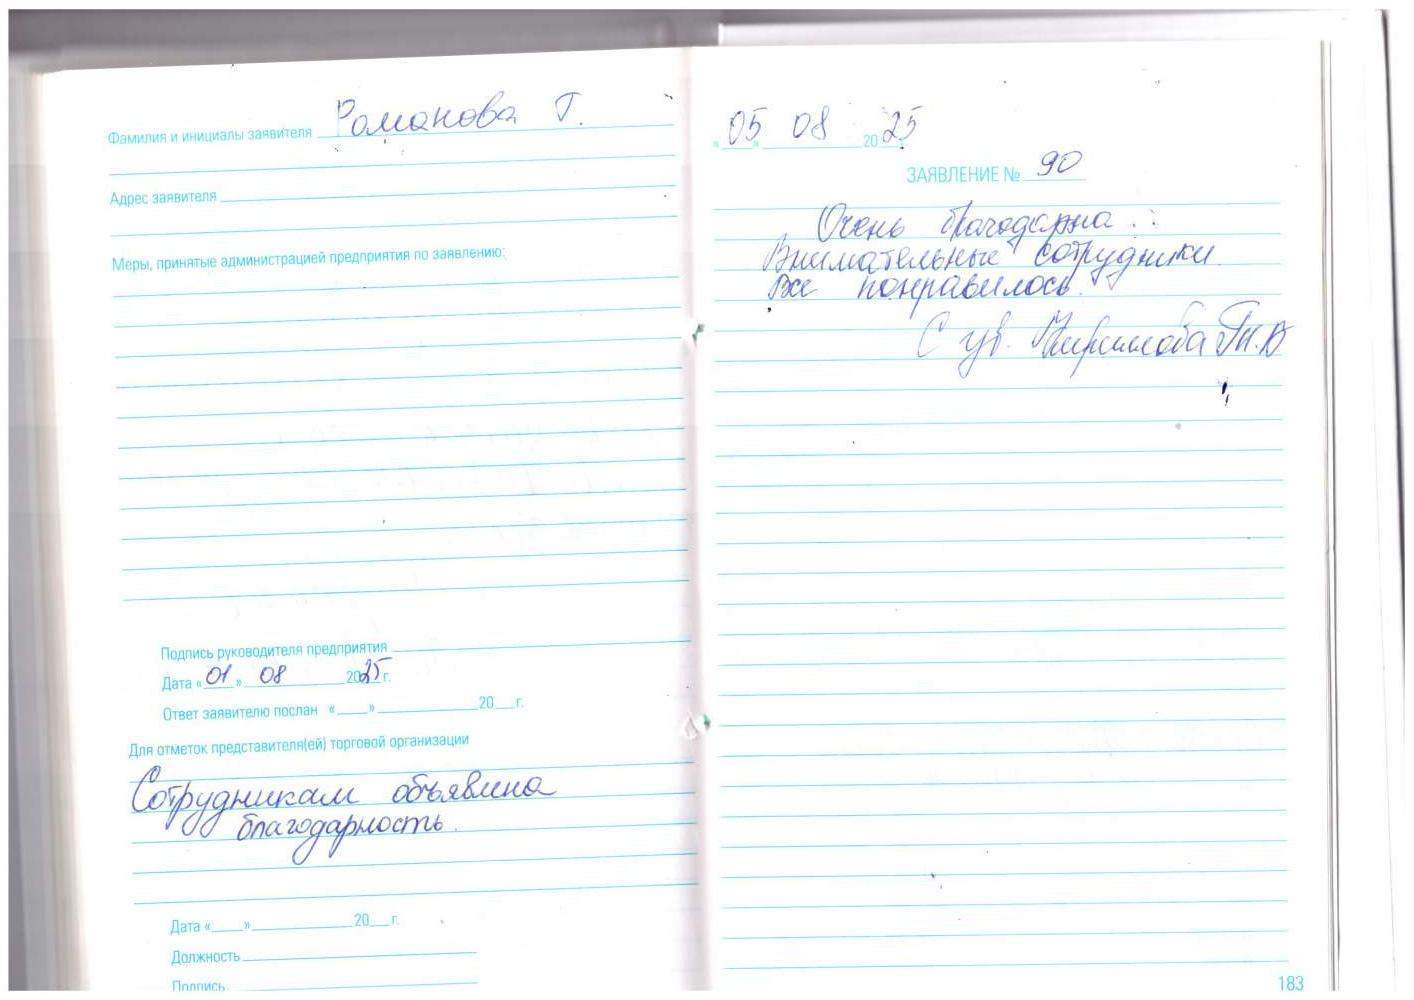 Фамилия и инициалы заявителя Романова Г.
Адрес заявителя
Меры, принятые администрацией предприятия по заявлению:
Подпись руководителя предприятия
Дата «01» 08 2025 г.
Ответ заявителю послан «___» ___ 20__ г.
Для отметок представителя(ей) торговой организации
Сотрудникам объявлина
благодарность.
Дата «___» ___ 20__ г.
Должность
Подпись
«05» 08 2025
ЗАЯВЛЕНИЕ № 90
Очень благодарна.
Внимательные сотрудники.
Все понравилось.
С ув.
183